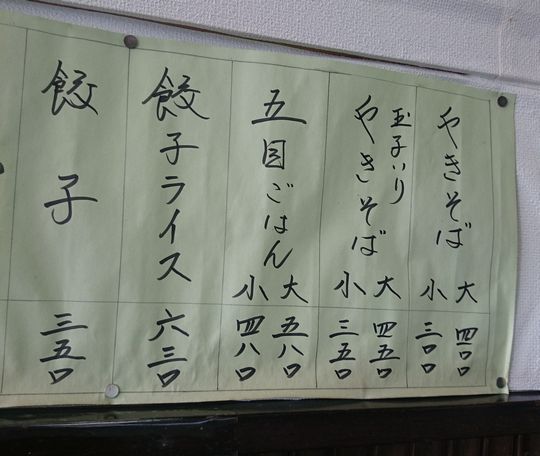 やきそば
大 四〇〇
小 三〇〇
玉子いり
やきそば
大 四五〇
小 三五〇
五目ごはん
大 五八〇
小 四八〇
餃子ライス
六三〇
餃子
三五〇